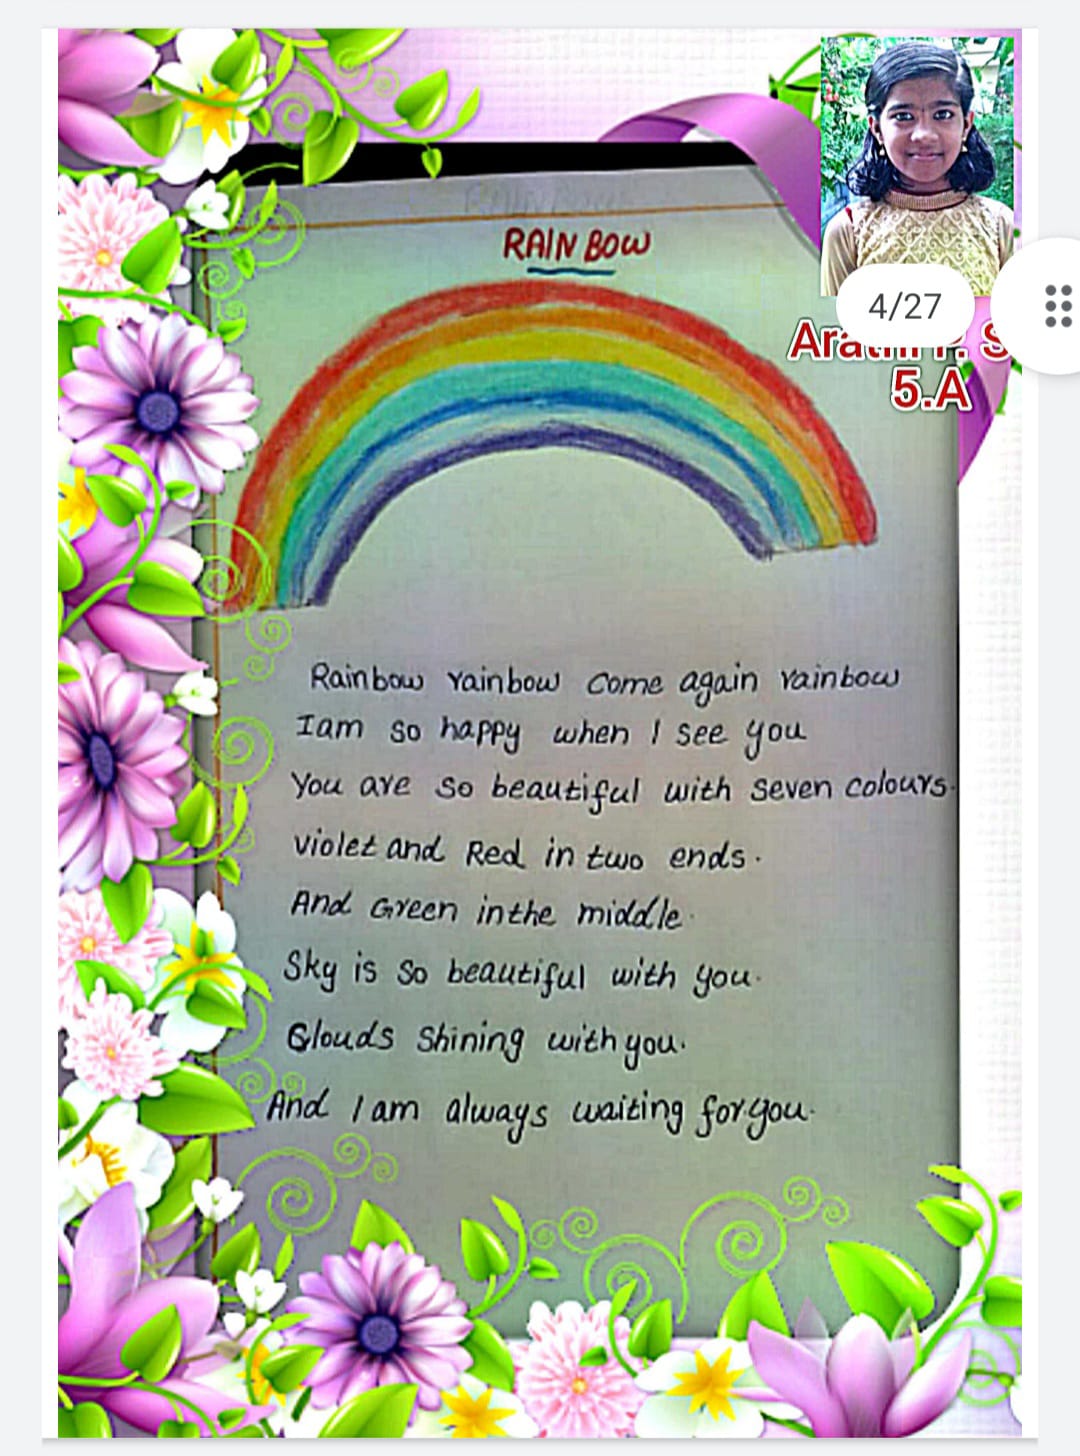 RAINBOW
4/27
5.A
Rainbow rainbow come again rainbow
Iam so happy when I see you
You are so beautiful with seven colours.
violet and Red in two ends.
And Green inthe middle.
Sky is so beautiful with you.
Clouds shining with you.
And I am always waiting for you.